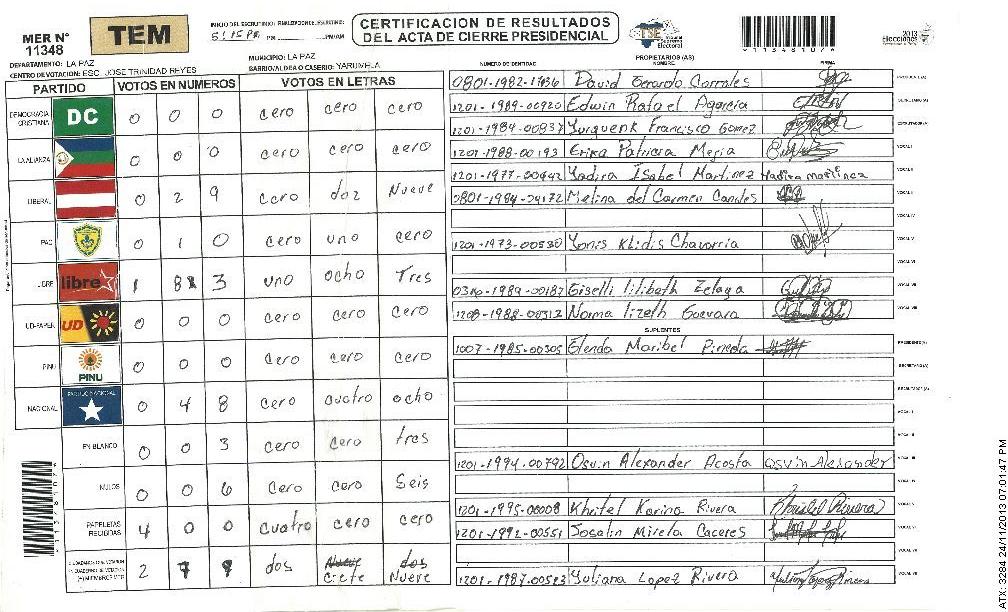 MER N° 11348
TEM
INICIO DEL ESCRUTINIO: FINALIZACION DEL ESCRUTINIO:
5:15 PM PM/AM
CERTIFICACION DE RESULTADOS
DEL ACTA DE CIERRE PRESIDENCIAL
TSE Tribunal Supremo Electoral
2013
Elecciones
DEPARTAMENTO: LA PAZ MUNICIPIO: LA PAZ
CENTRO DE VOTACION: ESC. JOSE TRINIDAD REYES BARRIO/ALDEA O CASERIO: YARUMELA
PARTIDO VOTOS EN NUMEROS VOTOS EN LETRAS
DEMOCRACIA CRISTIANA DC 0 0 0 cero cero cero
LA ALIANZA 0 0 0 cero cero cero
LIBERAL 0 2 9 cero dos Nueve
PAC 0 1 0 cero uno cero
LIBRE libre 1 8 3 uno ocho Tres
UD-FAPER UD 0 0 0 cero cero cero
PINU PINU 0 0 0 cero cero cero
NACIONAL PARTIDO NACIONAL 0 4 8 cero cuatro ocho
EN BLANCO 0 0 3 cero cero tres
NULOS 0 0 6 cero cero Seis
PAPELETAS RECIBIDAS 4 0 0 cuatro cero cero
(+) MIEMBROS MER 2 7 9 dos Ciete Nueve
PROPIETARIOS (AS)
NUMERO DE IDENTIDAD NOMBRE FIRMA
David Gerardo Corrales PRESIDENTE(A)
1201-1989-00920 Edwin Rafael Agarcia SECRETARIO(A)
1201-1984-00837 Yurquenk Francisco Gomez ESCRUTADOR(A)
1201-1988-00193 Erika Patricia Mejia VOCAL I
1201-1977-00442 Yadira Isabel Martinez Yadira martinez VOCAL II
0801-1984-04172 Melina del Carmen Canales VOCAL III
VOCAL IV
1201-1973-00530 Yonis Klidis Chavarria VOCAL V
VOCAL VI
Giselli lilibeth Zelaya VOCAL VII
1208-1988-00312 Norma lizeth Guevara VOCAL VIII
SUPLENTES
1007-1985-00305 Glenda Maribel Pineda PRESIDENTE(A)
SECRETARIO(A)
ESCRUTADOR(A)
VOCAL I
VOCAL II
1201-1994-00792 Osvin Alexander Acosta Osvin Alexander VOCAL III
VOCAL IV
1201-1995-00008 Khritel Karina Rivera VOCAL V
1201-1992-00551 Josalin Mirela Caceres VOCAL VI
VOCAL VII
1201-1987-00523 Yuliana Lopez Rivera VOCAL VIII
ATX: 3284 24/11/2013 07:01:47 PM